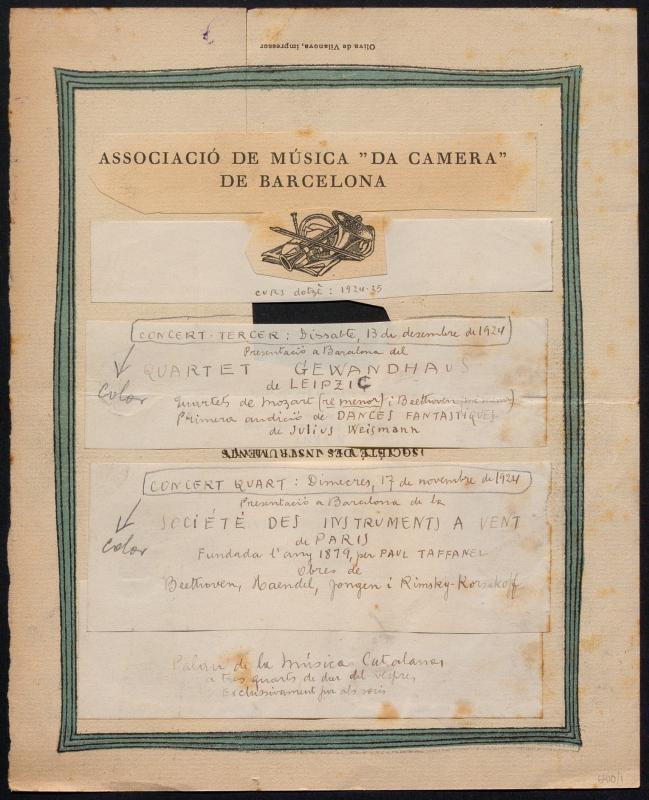 Oliva de Vilanova, impressor
ASSOCIACIÓ DE MÚSICA "DA CAMERA"
DE BARCELONA
CURS dotzè: 1924-25
CONCERT TERCER: Dissabte, 13 de desembre de 1924
Presentació a Barcelona del
QUARTET GEWANDHAUS
de LEIPZIG
color
Quartets de Mozart (re menor) i Beethoven
Primera audició de DANCES FANTASTIQUES
de Julius Weismann
SOCIÉTÉ DES INSTRUMENTS
CONCERT QUART: Dimecres, 17 de novembre de 1924
Presentació a Barcelona de la
SOCIÉTÉ DES INSTRUMENTS A VENT
de PARIS
color
Fundada l'any 1879, per PAUL TAFFANEL
Obres de
Beethoven, Haendel, Jongen i Rimsky-Korsakoff
Palau de la Música Catalana,
a tres quarts de deu del vespre,
Exclussivament per als socis